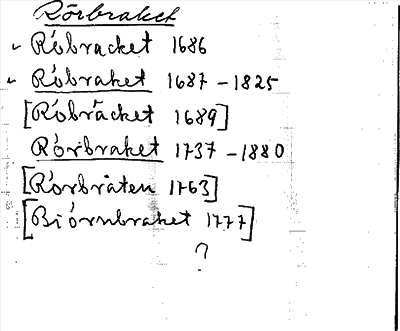 Rörbraket
✓ Róbracket 1686
✓ Róbraket 1687 - 1825
[Róbräcket 1689]
Rórbraket 1737 - 1880
[Rórbråten 1763]
[Biórnbraket 1777]
?